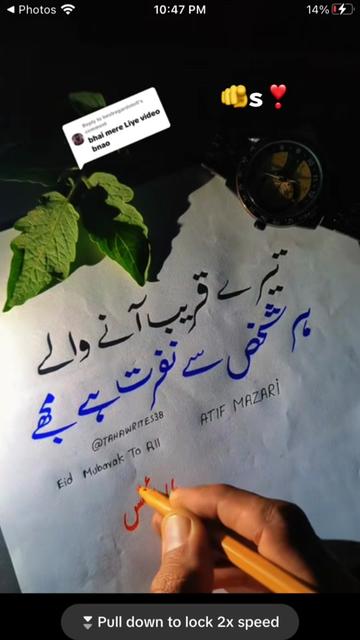 Photos
10:47 PM
14%
s
Reply to
comment
bhai mere Liye video
bnao
تیرے قریب آنے والے
ہر شخص سے نفرت ہے مجھے
@TAHAWRITES38
ATIF MAZARI
Eid Mubarak To All
Pull down to lock 2x speed